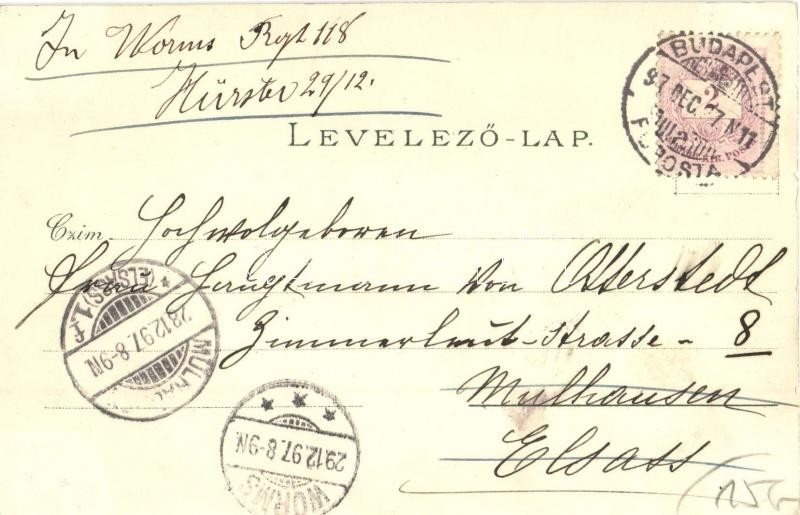 In Worms Rgt 118
Hürster 29/12.
LEVELEZŐ-LAP.
BUDAPEST
97 DEC. 27 N 11
FŐPOSTA
Czim Hochwolgeboren
Frau Hauptmann von Otterstedt
Zimmerleut-Strasse - 8
Mulhausen
Elsass
MÜLHAU
(ELSASS) 1. f
28.12.97. 8-9N.
WORMS
29.12.97. 8-9N.